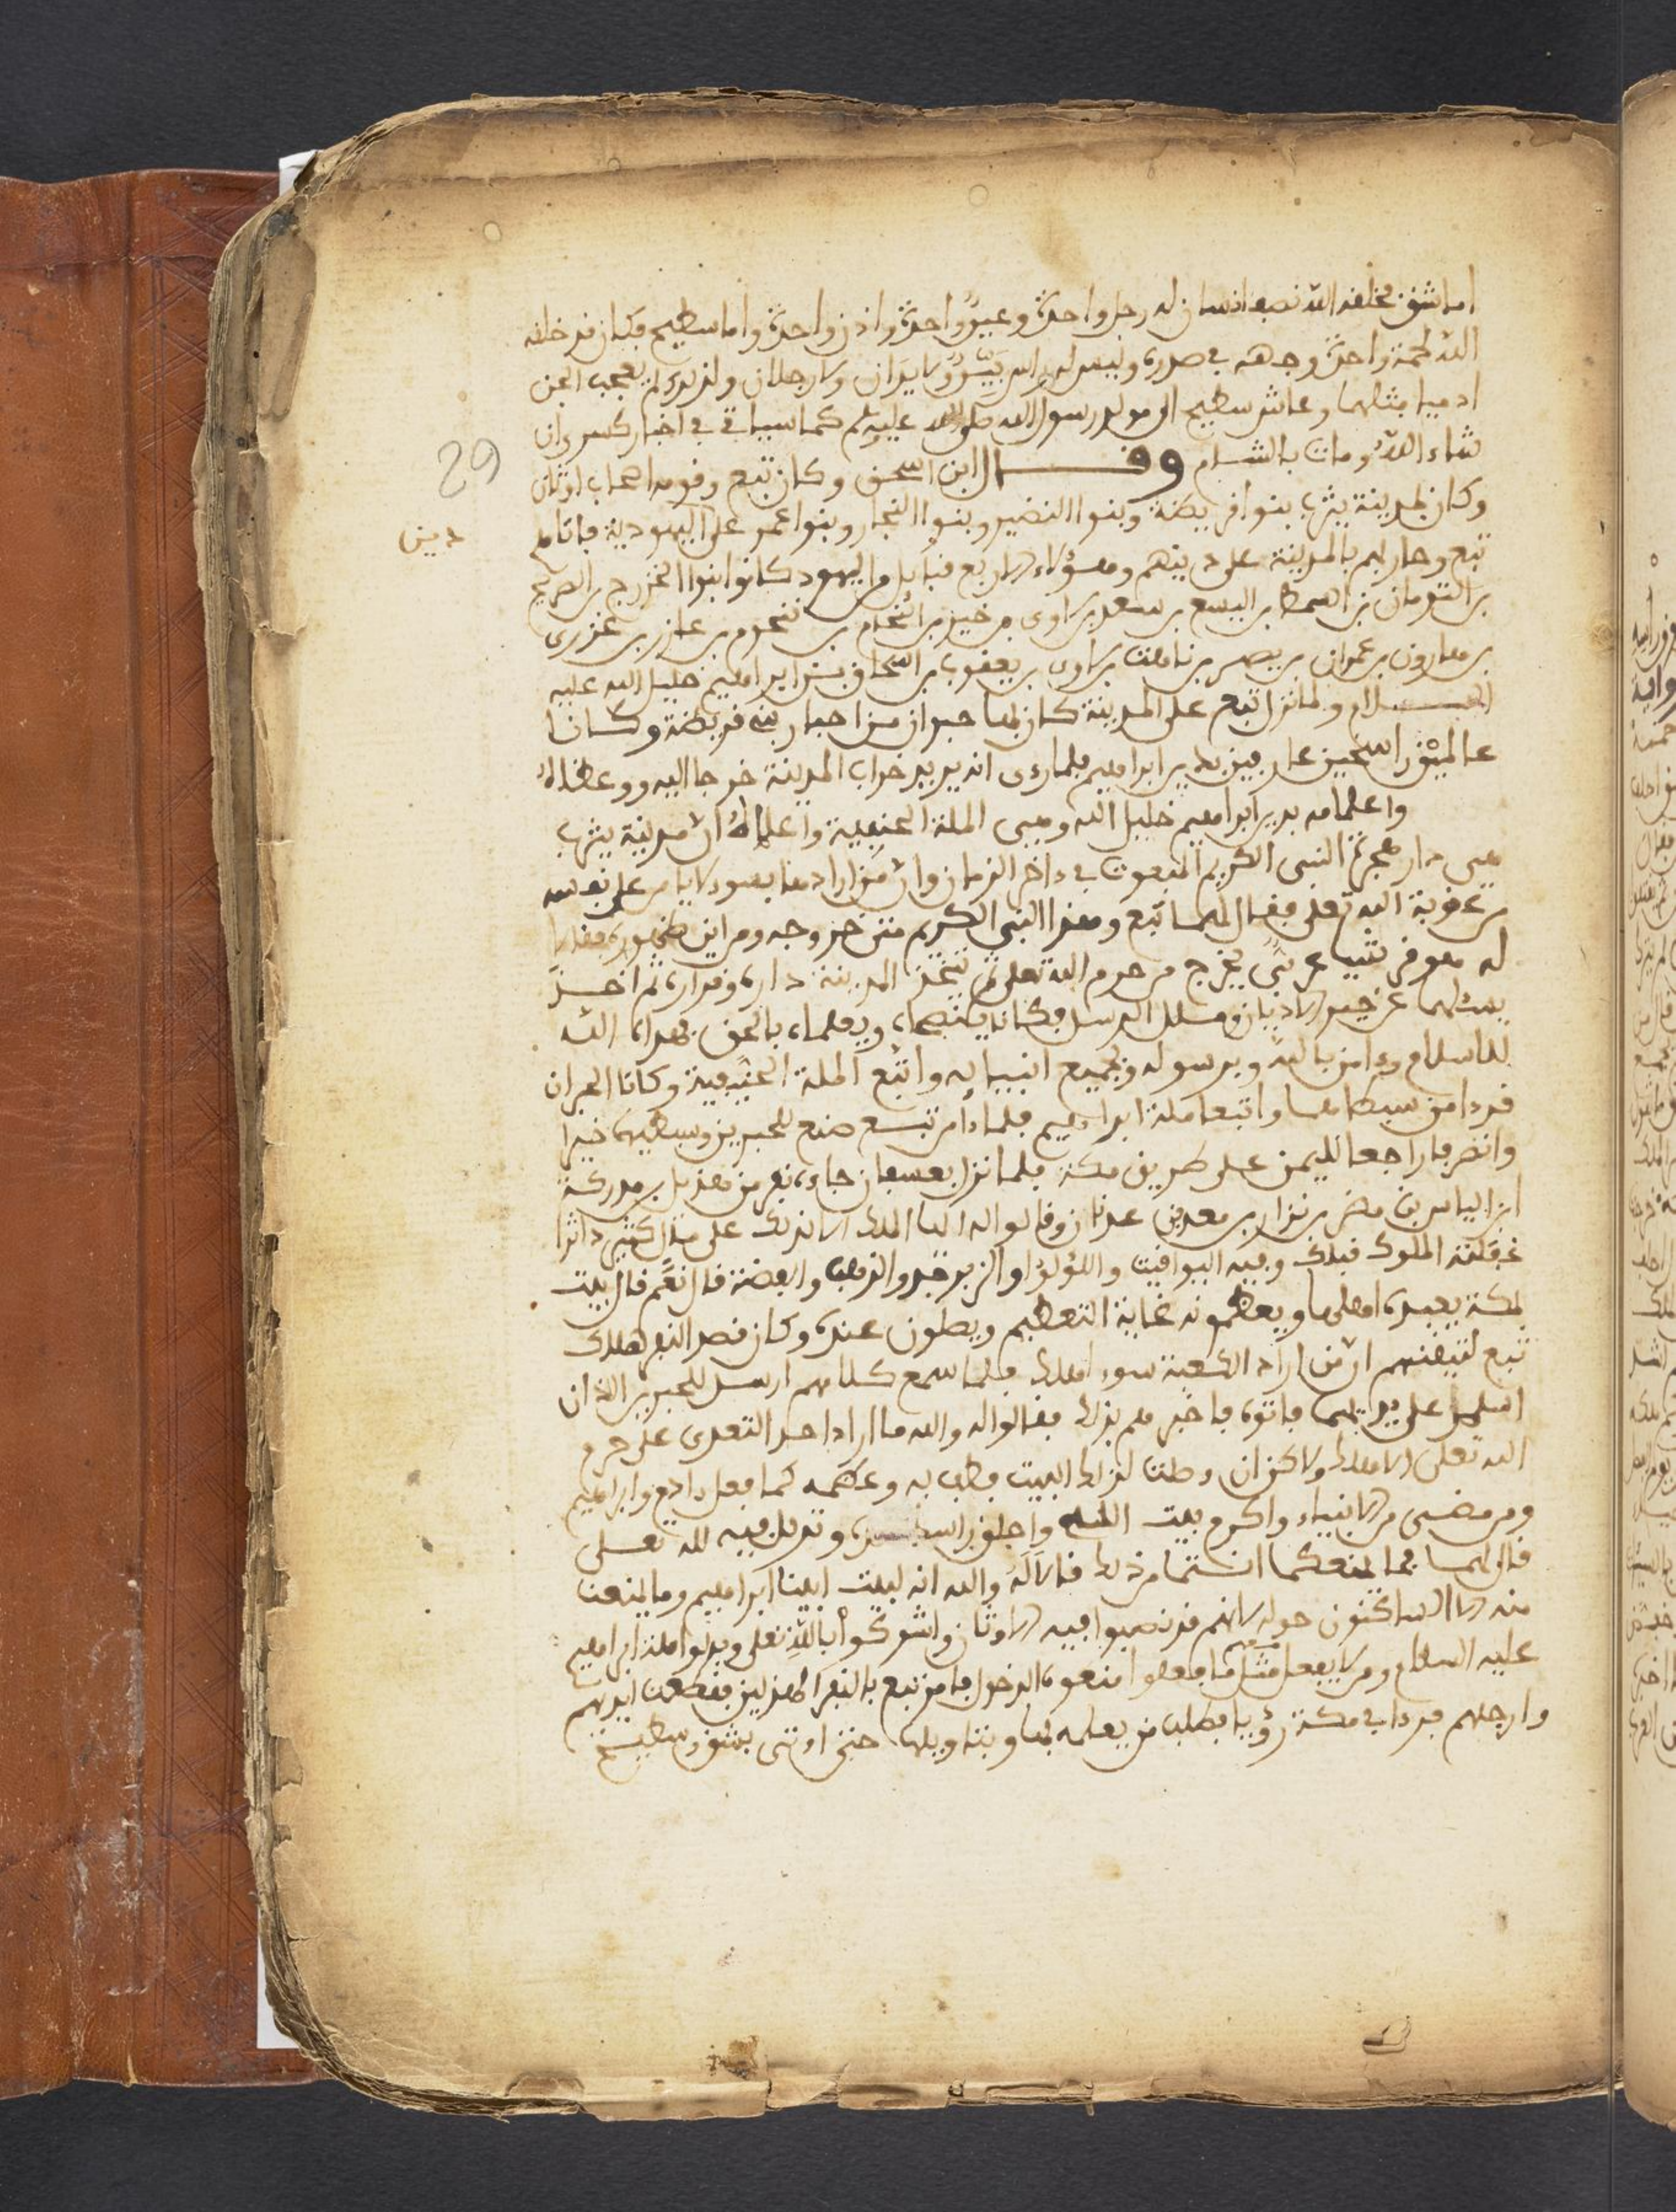 اما شق فخلقه الله نصف انسان له رجل واحدة وعين واحدة واذن واحدة واما سطيح فكان قد خلقه
الله لحمة واحدة وجهه في صدره وليس له راس بين ولا يدان ولا رجلان ولم يعجب الجن
ادميا مثلهما وعاش سطيح الى مولد رسول الله صلى الله عليه كما سياتي في اخبار كسرى ان
شاء الله ومات بالشام وقال ابن اسحق وكان تبع وقومه اصحاب اوثان
29
وكان لمدينة يثرب بنوا قريظة وبنوا النضير وبنوا النجار وبنوا عمر على اليهودية فاتاهم
دين
تبع وحاربهم بالمدينة على دينهم وهؤلاء الاربع قبائل واليهود كانوا بنوا الخزرج بن الصريح
بن التومان بن السمط بن اليسع بن سعد بن لاوى بن خير بن النحام بن تنحوم بن عازر بن عزرى
بن هارون بن عمران بن يصهر بن قاهث بن لاوى بن يعقوب بن اسحاق بن ابراهيم خليل الله عليه
السلام ولما نزل تبع على المدينة كان بها حبران من احبار بني قريظة وكانا
عالمين راسخين عارفين بدين ابراهيم فلما راى انه يريد خراب المدينة خرجا اليه ووعظاه
واعلماه بدين ابراهيم خليل الله وهي الملة الحنيفية واعلماه ان مدينة يثرب
هي دار هجرة النبي الكريم المبعوث في داخر الزمان وان من ارادها بسوء لا يامن على نفسه
من عقوبة الله تعلى فقال لهما تبع وهذا النبي الكريم متى خروجه ومن اين ظهوره فقالا
له هو قرشي عربي يخرج من حرم الله تعلى يتخذ المدينة داره وقراره ثم اخذ
يسئلهما عن جميع الاديان ومسلل الرسل فكانا يفهماه ويعلماه بالحق فهداه الله
للاسلام وءامن بالله وبرسوله وبجميع انبيائه واتبع الملة الحنيفية وكانا الحبران
قد ءامن سبطاهما واتبعا ملة ابراهيم فلما ءامن تبع صنع للحبرين وسبطيهما خيرا
وانصرفا راجعا لليمن على طريق مكة فلما نزل بعسفان جاءه نفر من هذيل بن مدركة
ابن الياس بن مضر بن نزار بن معد بن عدنان وقالوا له ايها الملك الا ندلك على مال كثير داثر
غفلته الملوك قبلك وفيه اليواقيت واللؤلؤ والزبرجد والذهب والفضة قال نعم قالوا بيت
بمكة يعبده اهلها ويعظمونه غاية التعظيم ويصلون عنده وكان قصد النفر هلاك
تبع لتيقنهم ان من اراد الكعبة بسوء هلك فلما سمع كلامهم ارسل للحبرين الذان
اسلم على يديهما فاتوه فاخبرهم بذلك فقالوا له والله ما اراد احد التعدى على حرم
الله تعلى الا هلك ولاكن ان وصلت لذلك البيت فطف به وعظمه كما فعل ءادم وابراهيم
ومن مضى من الانبياء واكرم بيت الله واحلق راسك عنده وتذلل فيه لله تعلى
فقال لهما فما يمنعكما انتما من ذلك قالا له والله انه لبيت ابينا ابراهيم وما يمنعنا
منه الا الساكنون حوله لانهم قد نصبوا فيه الاوثان واشركوا بالله تعلى وبدلوا ملة ابراهيم
عليه السلام ومن لا يفعل مثل ما فعلوا منعوه الدخول فامر تبع بالنفر الهذليين فقطعت ايديهم
وارجلهم فرءا في مكة رؤيا فطلب من يعلمه بها وبتاويلها حتى اوتي بشق وسطيح